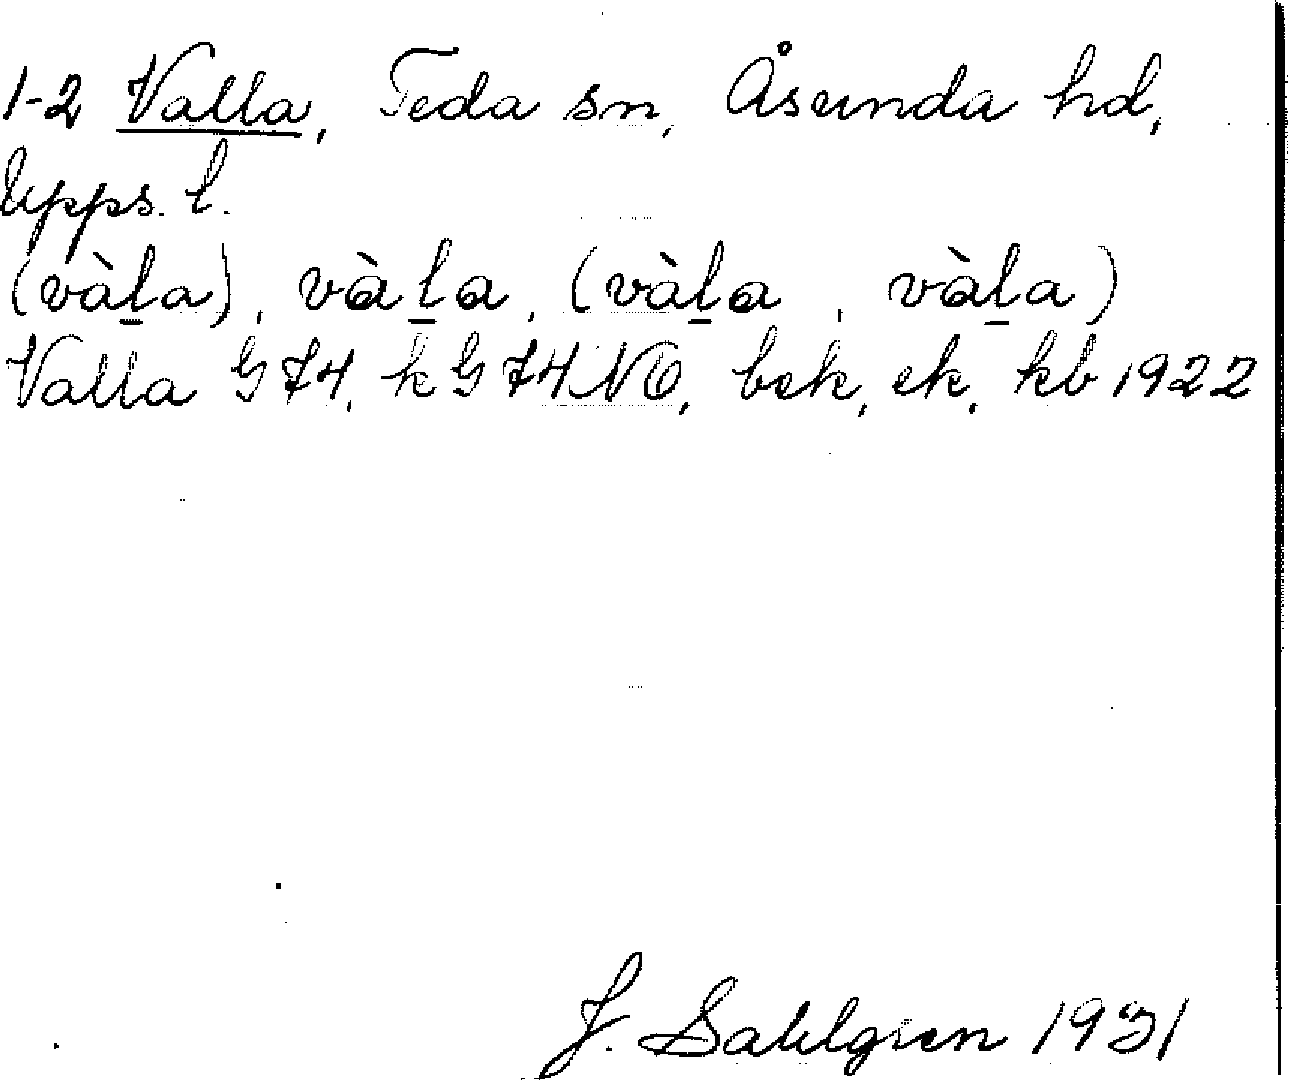 1-2 Valla, Teda sn, Åsunda hd,
Upps. l.
(vàl̠a), vàl̠a, (vàl̠a, vàl̠a)
Valla G 74, k G 74 NO, bek, ek, kb 1922
J. Sahlgren 1931